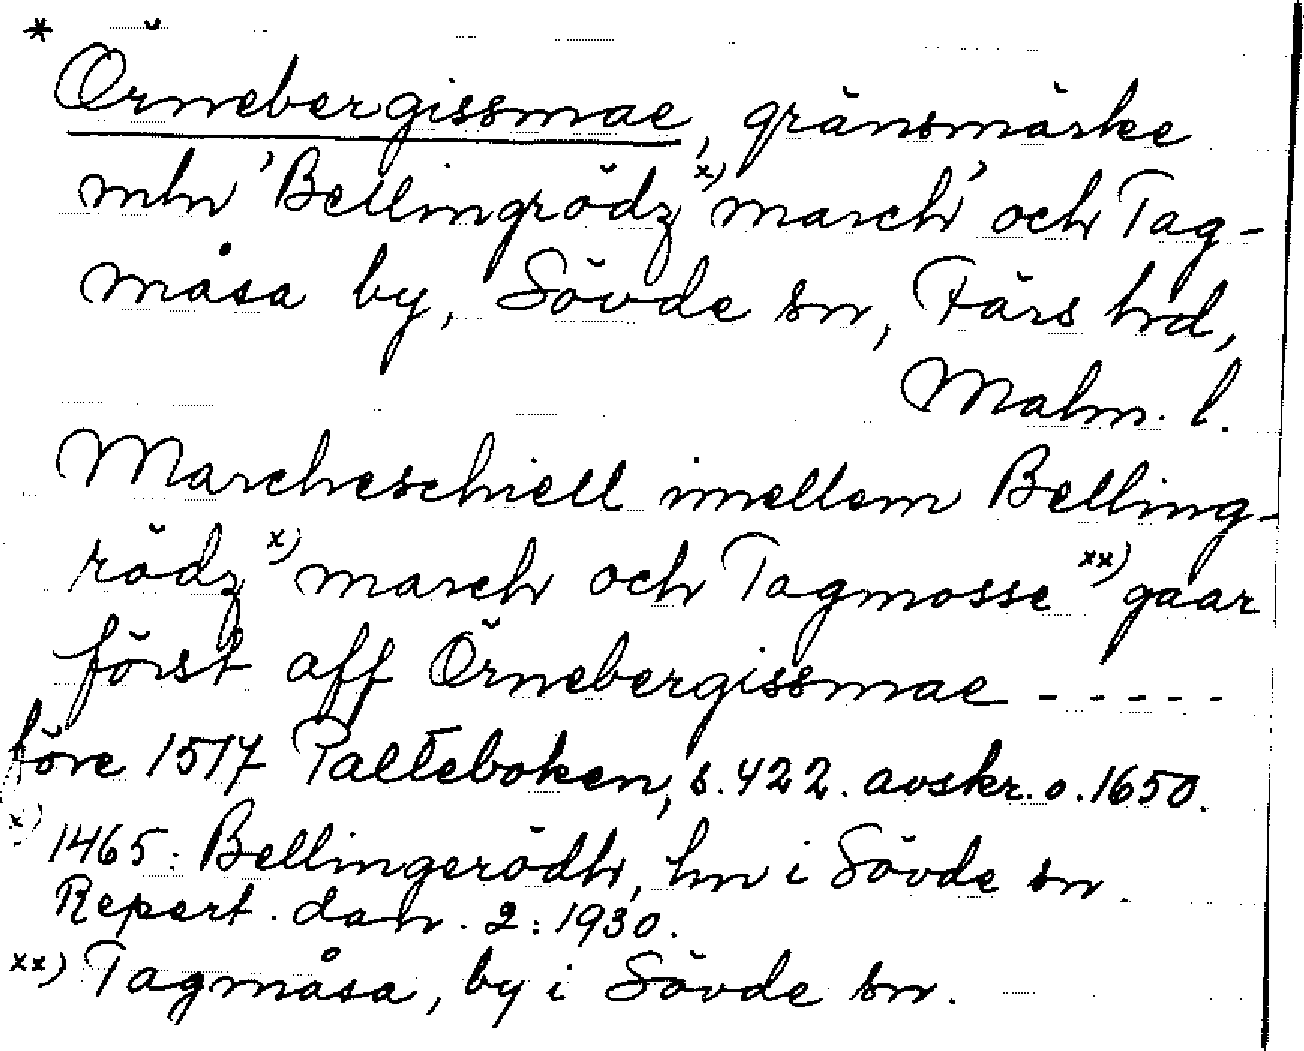 * Örnebergissmae, gränsmärke
mln 'Bellingrödz x) march' och Tag-
måsa by, Sövde sn, Färs hd,
Malm. l.
Marcheschiell imellem Belling-
rödz x) march och Tagmosse xx) gaar
först aff Örnebergissmae - - - - -
före 1517 Palteboken, s. 422. avskr. o. 1650.
x) 1465: Bellingerödh, hn i Sövde sn.
Repert. dan. 2: 1930.
xx) Tagmåsa, by i Sövde sn.